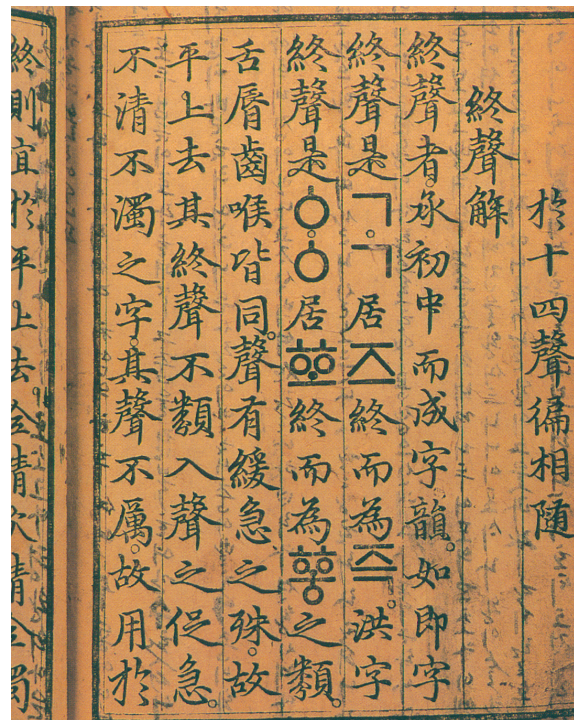 於十四聲徧相隨
終聲解
終聲者。承初中而成字韻。如即字
終聲是ㄱ。ㄱ居즈終而為즉。洪字
終聲是ㆁ。ㆁ居ᅘᅩ終而為ᅘᅩᇰ之類。
舌脣齒喉皆同。聲有緩急之殊。故
平上去其終聲不類入聲之促急。
不清不濁之字。其聲不厲。故用於
終則宜於平上去。全清次清全濁